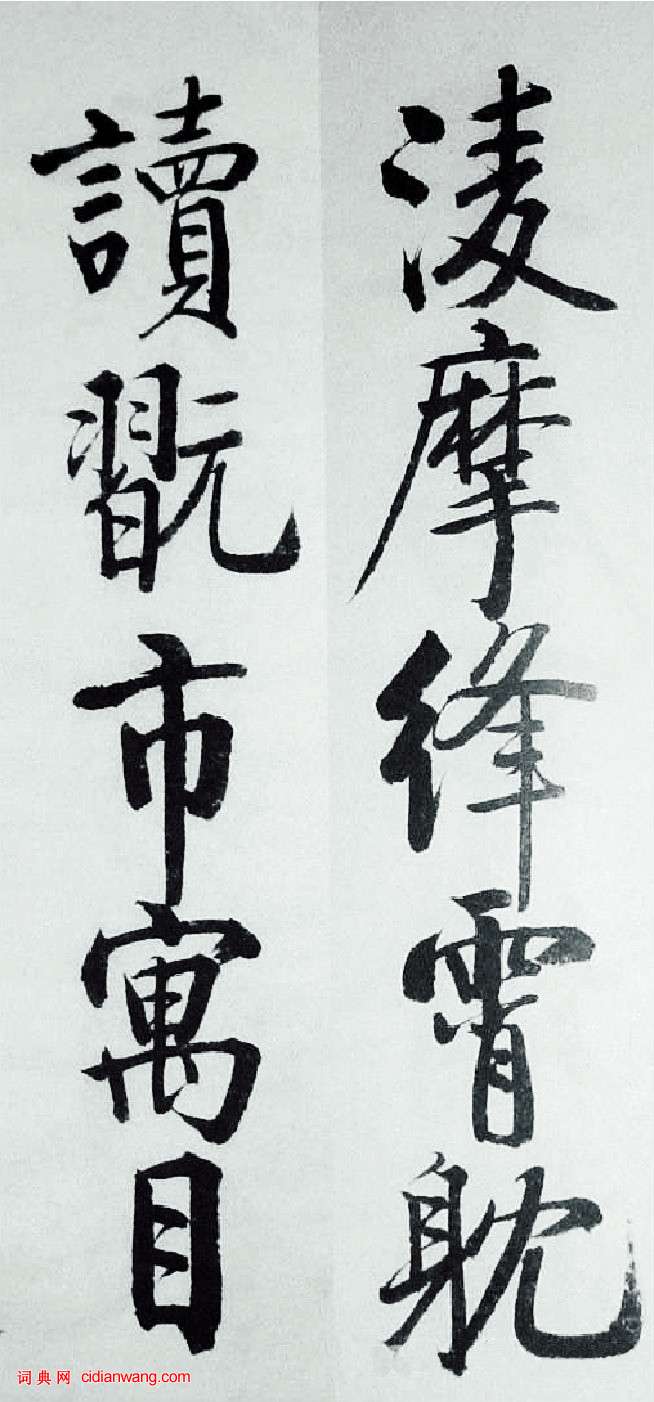 凌摩绛霄躭
讀翫市寓目
词典网 cidianwang.com